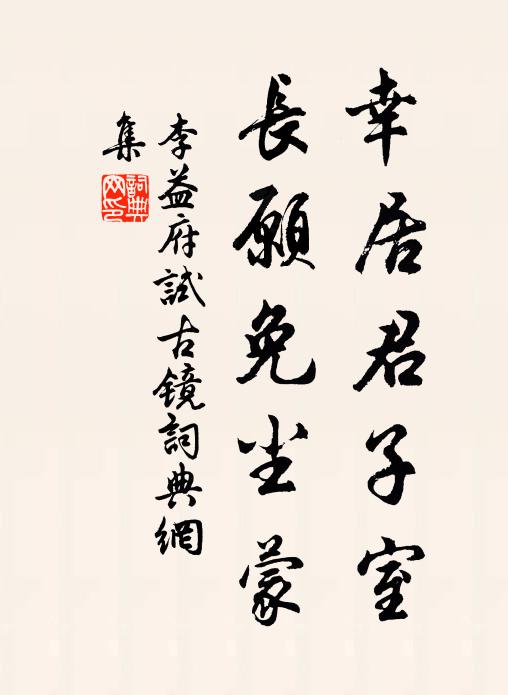 幸居君子室
長願免尘蒙
李益府試古镜詞典網
集
詞典
网印